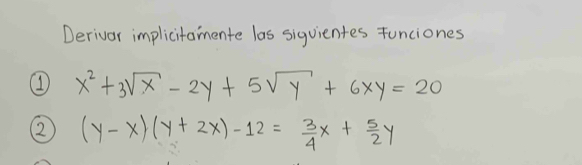 Derivar implicitamente las siguientes Funciones
① x² + 3√x - 2y + 5√y + 6xy = 20
② (y - x)(y + 2x) - 12 = 3/4 x + 5/2 y